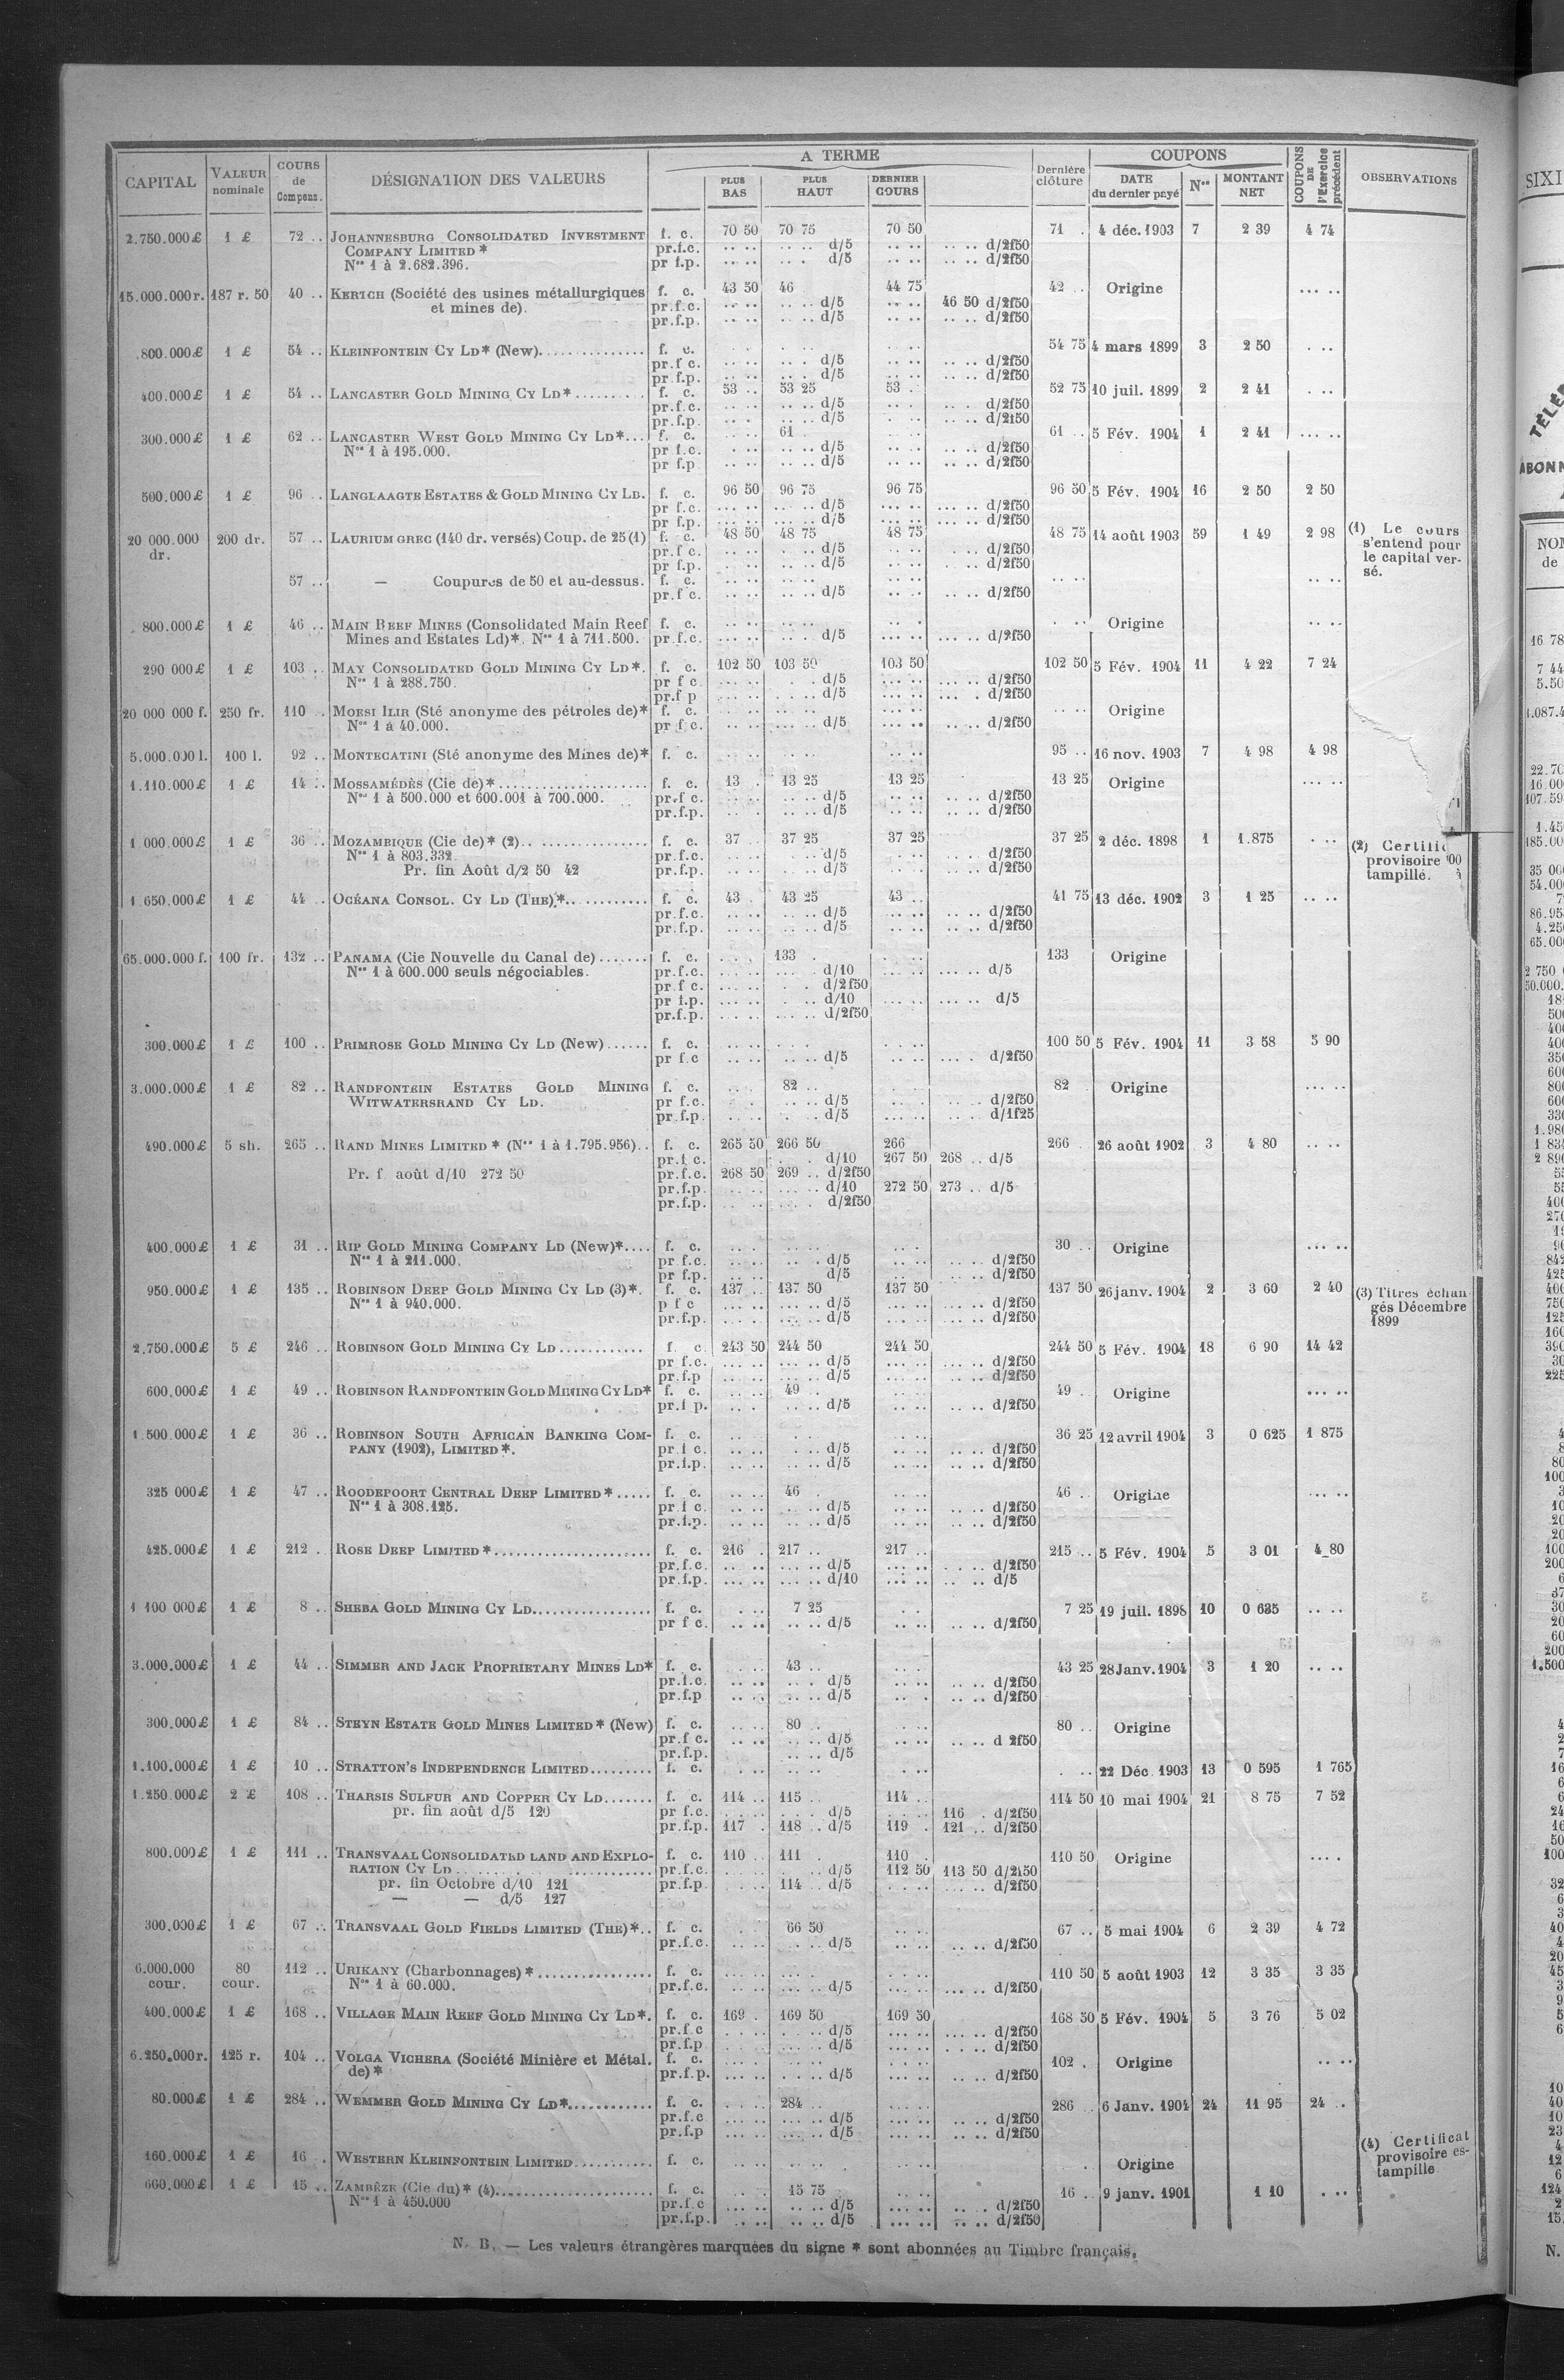 CAPITAL | VALEUR nominale | COURS de Compens. | DÉSIGNATION DES VALEURS | A TERME | PLUS BAS | PLUS HAUT | DERNIER COURS | Dernière clôture | COUPONS | DATE du dernier payé | Nos | MONTANT NET | COUPONS DE l'Exercice précédent | OBSERVATIONS
2.750.000£ 1 £ 72 .. JOHANNESBURG CONSOLIDATED INVESTMENT f. c. 70 50 70 75 70 50 71 . 4 déc. 1903 7 2 39 4 74
COMPANY LIMITED * pr.f.c. .. .. .. .. d/5 .. .. .. .. d/2f50
Nos 1 à 2.682.396. pr f.p. .. .. .. . d/5 .. .. .. .. d/2f50
15.000.000r. 187 r. 50 40 .. KERTCH (Société des usines métallurgiques f. c. 43 50 46 44 75 42 .. Origine ... ..
et mines de). pr.f.c. .. .. .. .. d/5 .. .. 46 50 d/2f50
pr.f.p. .. .. .. .. d/5 .. .. d/2f50
800.000£ 1 £ 54 .. KLEINFONTEIN CY LD* (New). f. c. 54 75 4 mars 1899 3 2 50 . ..
pr.f c. .. .. d/5 .. .. d/2f50
pr.f.p. .. .. d/5 .. .. d/2f50
400.000£ 1 £ 54 .. LANCASTER GOLD MINING CY LD* f. c. 53 .. 53 25 53 . 52 75 10 juil. 1899 2 2 41 . ..
pr.f.c. .. .. d/5 .. .. d/2f50
pr.f.p. .. .. d/5 .. .. d/2f50
300.000£ 1 £ 62 .. LANCASTER WEST GOLD MINING CY LD*... f. c. 61 61 .. 5 Fév. 1904 1 2 41 ... ..
Nos 1 à 195.000. pr f.c. .. .. d/5 .. .. d/2f50
pr f.p .. .. d/5 .. .. d/2f50
500.000£ 1 £ 96 .. LANGLAAGTE ESTATES & GOLD MINING CY LD. f. c. 96 50 96 75 96 75 96 50 5 Fév. 1904 16 2 50 2 50
pr f.c. ... .. d/5 ... .. d/2f50
pr f.p. ... .. d/5 ... .. d/2f50
20 000.000 dr. 200 dr. 57 .. LAURIUM GREC (140 dr. versés) Coup. de 25 (1) f. c. 48 50 48 75 48 75 48 75 14 août 1903 59 1 49 2 98
(1) Le cours
s'entend pour
le capital ver-
sé.
pr.f c. .. .. d/5 .. .. d/2f50
pr f.p. .. .. d/5 .. .. d/2f50
57 .. — Coupures de 50 et au-dessus. f. c. .. .. .. ..
pr.f c. .. .. d/5 .. .. d/2f50
800.000£ 1 £ 46 .. MAIN REEF MINES (Consolidated Main Reef f. c. Origine .. ..
Mines and Estates Ld)*. Nos 1 à 711.500. pr.f.c. ... .. d/5 ... .. d/2f50
290 000£ 1 £ 103 .. MAY CONSOLIDATED GOLD MINING CY LD*. f. c. 102 50 103 50 103 50 102 50 5 Fév. 1904 11 4 22 7 24
Nos 1 à 288.750. pr f c. d/5 ... .. d/2f50
pr.f p d/5 ... . d/2f50
20 000 000 f. 250 fr. 110 .. MOESI ILIR (Sté anonyme des pétroles de)* f. c. Origine
Nos 1 à 40.000. pr f c. d/5 .. .. d/2f50
5.000.000 l. 100 l. 92 .. MONTECATINI (Sté anonyme des Mines de)* f. c. 95 .. 16 nov. 1903 7 4 98 4 98
1.110.000£ 1 £ 14 .. MOSSAMÉDÈS (Cie de)* f. c. 13 . 13 25 13 25 13 25 Origine ... ..
Nos 1 à 500.000 et 600.001 à 700.000. pr.f c. d/5 .. .. d/2f50
pr.f.p. d/5 .. .. d/2f50
1 000.000£ 1 £ 36 .. MOZAMBIQUE (Cie de)* (2) f. c. 37 . 37 25 37 25 37 25 2 déc. 1898 1 1.875 . ..
Nos 1 à 803.332. pr.f.c. d/5 d/2f50
Pr. fin Août d/2 50 42 pr.f.p. d/5 d/2f50
(2) Certific
provisoire
tampillé.
1 650.000£ 1 £ 44 .. OCÉANA CONSOL. CY LD (THE)* f. c. 43 . 43 25 43 .. 41 75 13 déc. 1902 3 1 25 .. ..
pr.f.c. d/5 .. .. d/2f50
pr.f.p. d/5 .. .. d/2f50
65.000.000 f. 100 fr. 132 .. PANAMA (Cie Nouvelle du Canal de) f. c. 133 . 133 Origine
Nos 1 à 600.000 seuls négociables. pr.f.c. d/10 ... .. d/5
pr.f c. d/2f50
pr f.p. d/10 ... .. d/5
pr.f.p. d/2f50
300.000£ 1 £ 100 .. PRIMROSE GOLD MINING CY LD (New) f. c. 100 50 5 Fév. 1904 11 3 58 5 90
pr f.c d/5 d/2f50
3.000.000£ 1 £ 82 .. RANDFONTEIN ESTATES GOLD MINING f. c. 82 .. 82 Origine ... ..
WITWATERSRAND CY LD. pr f.c. d/5 d/2f50
pr.f.p. d/5 d/1f25
490.000£ 5 sh. 265 .. RAND MINES LIMITED * (Nos 1 à 1.795.956).. f. c. 265 50 266 50 266 266 . 26 août 1902 3 4 80 .. ..
pr.f c. d/10 267 50 268 .. d/5
Pr. f août d/10 272 50 pr.f.c. 268 50 269 .. d/2f50
pr.f.p. d/10 272 50 273 .. d/5
pr.f.p. d/2f50
400.000£ 1 £ 31 .. RIP GOLD MINING COMPANY LD (New)*.... f. c. 30 .. Origine ... ..
Nos 1 à 211.000. pr f.c. d/5 d/2f50
pr f.p. d/5 d/2f50
950.000£ 1 £ 135 .. ROBINSON DEEP GOLD MINING CY LD (3)*. f. c. 137 .. 137 50 137 50 137 50 26 janv. 1904 2 3 60 2 40
Nos 1 à 940.000. p f c d/5 d/2f50
pr.f.p. d/5 d/2f50
(3) Titres échan
gés Décembre
1899
2.750.000£ 5 £ 246 .. ROBINSON GOLD MINING CY LD f. c. 243 50 244 50 244 50 244 50 5 Fév. 1904 18 6 90 14 42
pr f.c. d/5 d/2f50
pr.f.p d/5 d/2f50
600.000£ 1 £ 49 .. ROBINSON RANDFONTEIN GOLD MINING CY LD* f. c. 49 . 49 . Origine ... ..
pr.f p. d/5 d/2f50
1.500.000£ 1 £ 36 .. ROBINSON SOUTH AFRICAN BANKING COM- f. c. 36 25 12 avril 1904 3 0 625 1 875
PANY (1902), LIMITED *. pr.f c. d/5 d/2f50
pr.f.p. d/5 d/2f50
325 000£ 1 £ 47 .. ROODEPOORT CENTRAL DEEP LIMITED * f. c. 46 . 46 . Origine ... ..
Nos 1 à 308.125. pr.f c. d/5 d/2f50
pr.f.p. d/5 d/2f50
425.000£ 1 £ 212 . ROSE DEEP LIMITED * f. c. 216 . 217 .. 217 .. 215 .. 5 Fév. 1904 5 3 01 4 80
pr.f.c. d/5 d/2f50
pr.f.p. d/10 d/5
1 100 000£ 1 £ 8 .. SHEBA GOLD MINING CY LD. f. c. 7 25 7 25 19 juil. 1898 10 0 635 .. ..
pr f c. d/5 d/2f50
3.000.000£ 1 £ 44 .. SIMMER AND JACK PROPRIETARY MINES LD* f. c. 43 .. 43 25 28 Janv. 1904 3 1 20 .. ..
pr.f.c. d/5 d/2f50
pr.f.p d/5 d/2f50
300.000£ 1 £ 84 .. STEYN ESTATE GOLD MINES LIMITED * (New) f. c. 80 .. 80 .. Origine
pr.f c. d/5 d 2f50
pr.f.p. d/5
1.100.000£ 1 £ 10 .. STRATTON'S INDEPENDENCE LIMITED f. c. 22 Déc. 1903 13 0 595 1 765
1.250.000£ 2 £ 108 .. THARSIS SULFUR AND COPPER CY LD f. c. 114 .. 115 .. 114 .. 114 50 10 mai 1904 21 8 75 7 52
pr. fin août d/5 120 pr f.c. d/5 116 . d/2f50
pr.f.p. 117 . 118 .. d/5 119 . 121 .. d/2f50
800.000£ 1 £ 111 .. TRANSVAAL CONSOLIDATED LAND AND EXPLO- f. c. 110 .. 111 . 110 . 110 50 Origine ... .
RATION CY LD pr.f.c. d/5 112 50 113 50 d/2f50
pr. fin Octobre d/10 121 pr.f.p 114 .. d/5 d/2f50
— — d/5 127
300.000£ 1 £ 67 .. TRANSVAAL GOLD FIELDS LIMITED (THE)*.. f. c. 66 50 67 .. 5 mai 1904 6 2 39 4 72
pr.f.c. d/5 d/2f50
6.000.000 cour. 80 cour. 112 .. URIKANY (Charbonnages) * f. c. 110 50 5 août 1903 12 3 35 3 35
Nos 1 à 60.000. pr.f.c. d/5 d/2f50
400.000£ 1 £ 168 .. VILLAGE MAIN REEF GOLD MINING CY LD*. f. c. 169 . 169 50 169 50 168 50 5 Fév. 1904 5 3 76 5 02
pr.f.c d/5 d/2f50
pr.f.p d/5 d/2f50
6.250.000r. 125 r. 104 .. VOLGA VICHERA (Société Minière et Métal. f. c. 102 . Origine .. ..
de) * pr.f.p. d/5 d/2f50
80.000£ 1 £ 284 .. WEMMER GOLD MINING CY LD* f. c. 284 .. 286 .. 6 Janv. 1904 24 11 95 24 ..
pr.f.c d/5 d/2f50
pr.f.p d/5 d/2f50
160.000£ 1 £ 16 . WESTERN KLEINFONTEIN LIMITED f. c. Origine
(4) Certificat
provisoire es-
tampille
660.000£ 1 £ 15 .. ZAMBÈZE (Cie du)* (4) f. c. 15 75 16 .. 9 janv. 1901 1 10 . ..
Nos 1 à 450.000 pr.f.c d/5 d/2f50
pr.f.p. d/5 d/2f50
N. B. — Les valeurs étrangères marquées du signe * sont abonnées au Timbre français.
SIXI
TÉLÉ
ABONN
NO
de